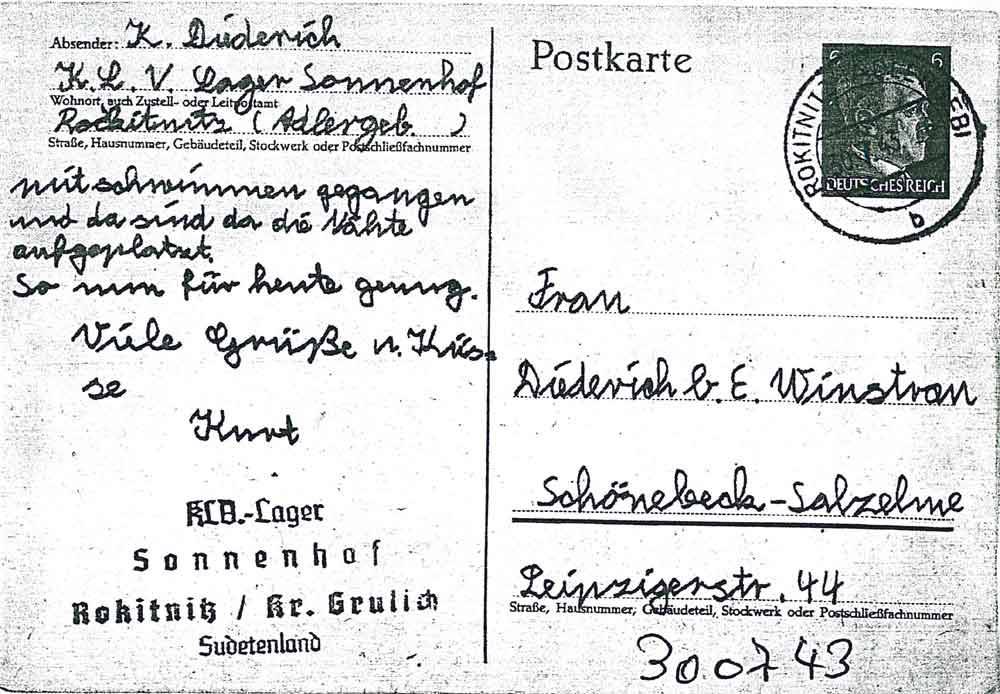 Absender: K. Diederich
K. L. V. Lager Sonnenhof
Wohnort, auch Zustell- oder Leitpostamt
Rockitnitz (Adlergeb. )
Straße, Hausnummer, Gebäudeteil, Stockwerk oder Postschließfachnummer
mit schwimmen gegangen
und da sind da die Nähte
aufgeplatzt.
So nun für heute genug.
Viele Grüße u. Küs=
se
Kurt
KLV.-Lager
Sonnenhof
Rokitnitz / Kr. Grulich
Sudetenland
Postkarte
6 6
DEUTSCHES REICH
ROKITNITZ
GEBI
b
Frau
Diederich b. E. Winstran
Schönebeck-Salzelme
Leipzigerstr. 44
Straße, Hausnummer, Gebäudeteil, Stockwerk oder Postschließfachnummer
30.07 43